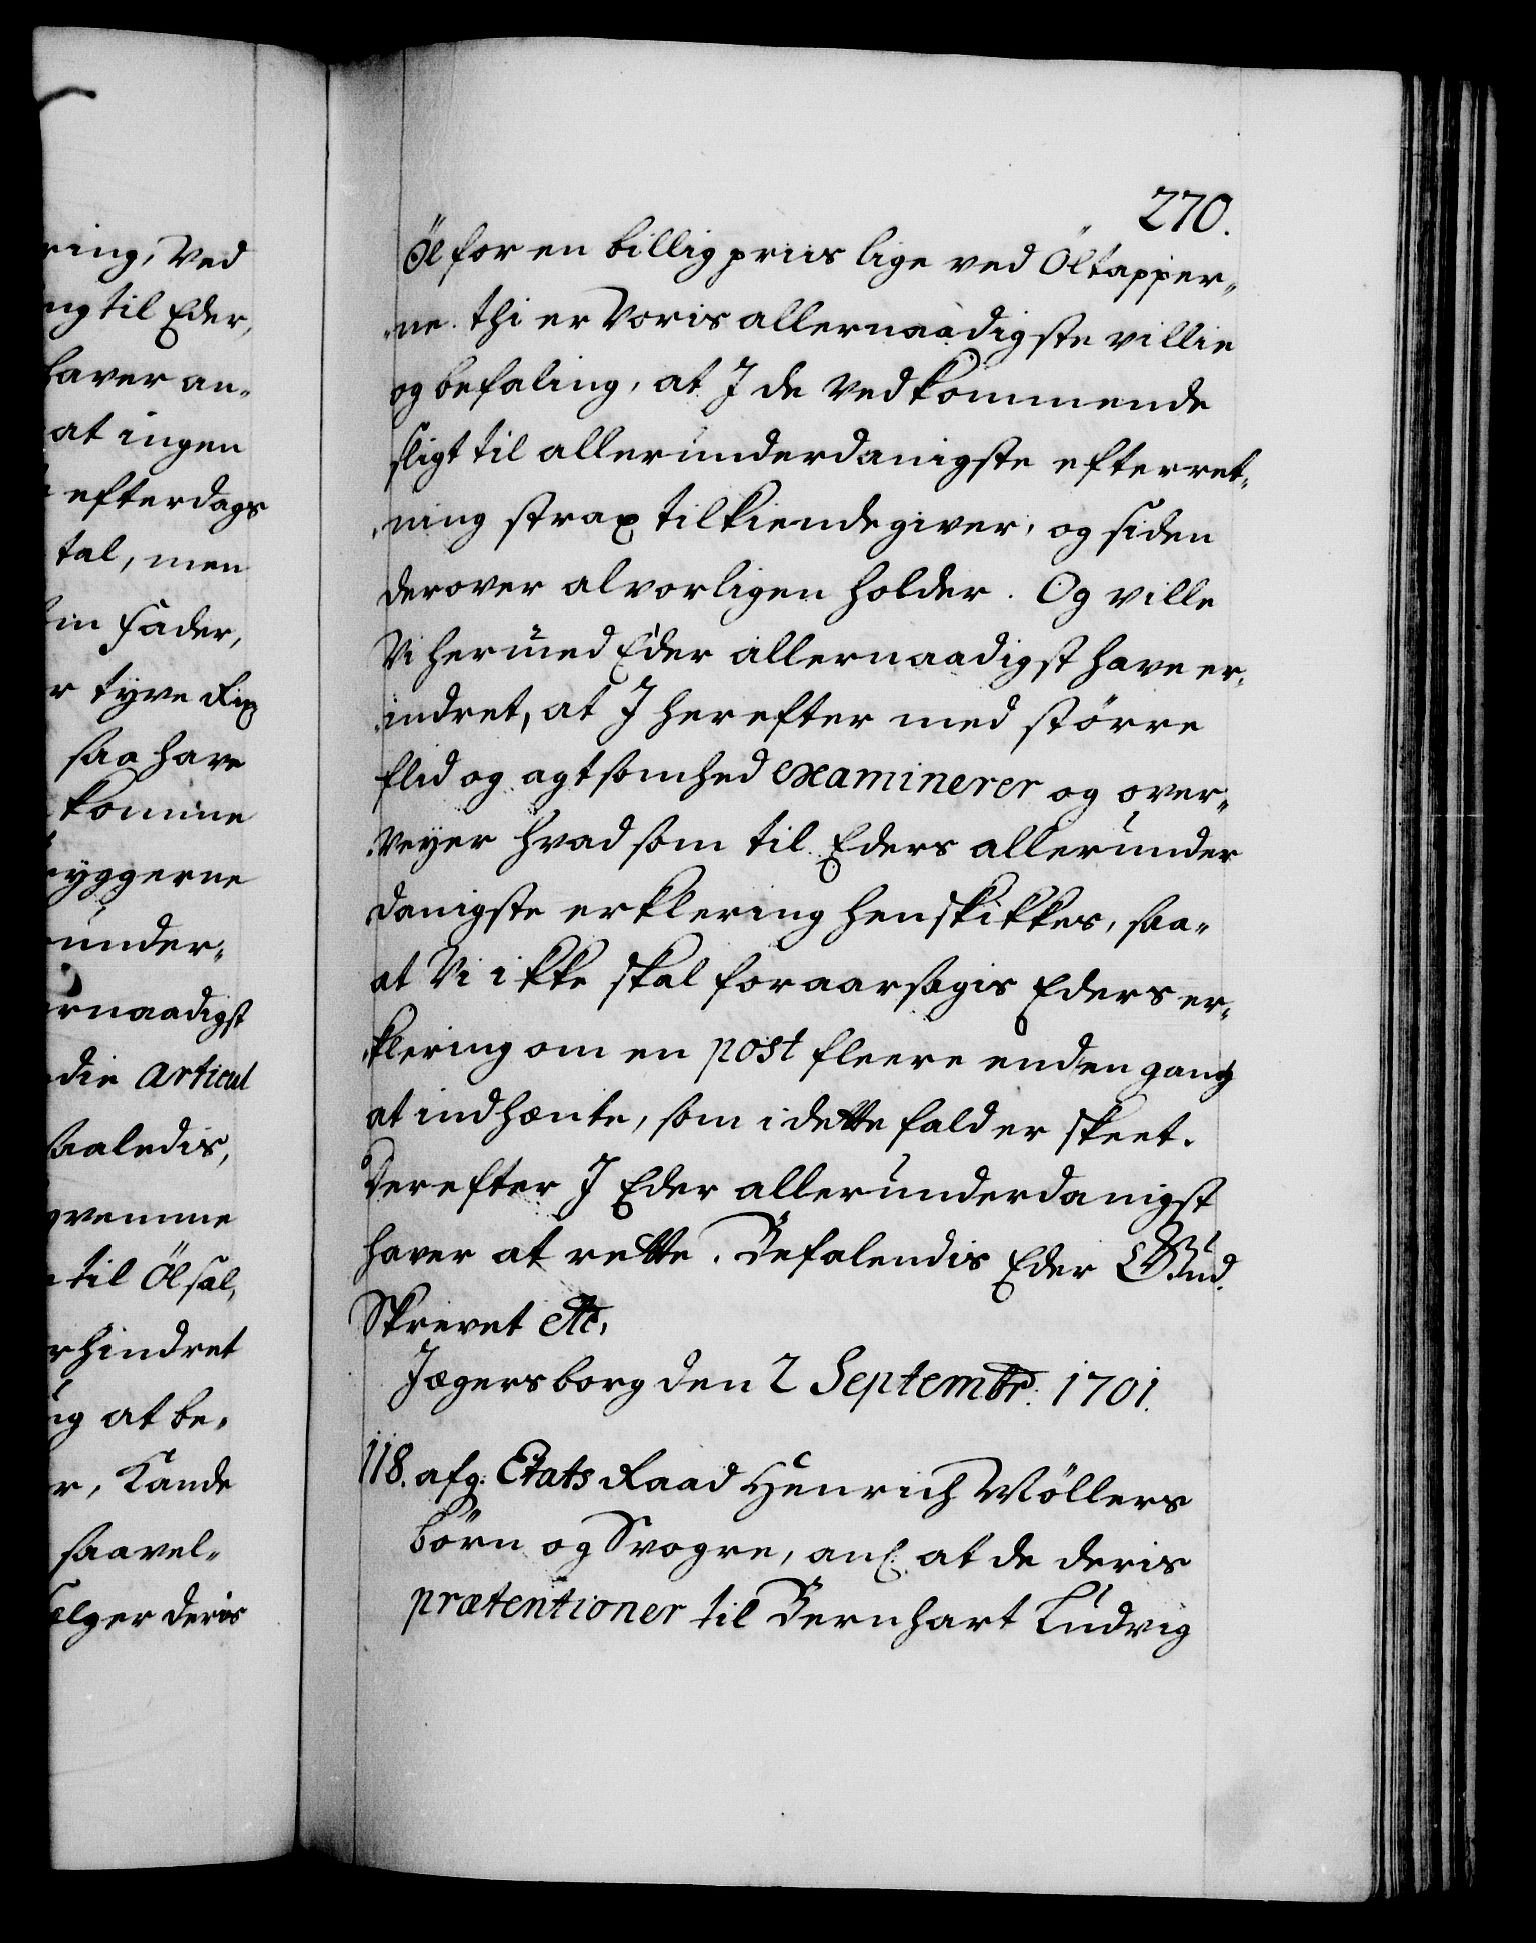 ring, ved
ng til Eder,
haver an-
at ingen
efterdags
tal, men
in fader,
r tyve Rix
saa have
komme
ryggerne
under-
ernaadigst
die Articul
saaledis,
gvemme
til Ölsal,
rhindret
ig at be-
r, Kande
saavel-
sælger deris
270.
Öl for en billig priis lige ved Öltapper-
ne. thi er Voris allernaadigste villie
og befaling, at I de vedkommende
sligt til allerunderdanigste efterret-
ning strax tilkiendegiver, og siden
derover alvorligen holder. Og ville
Vi hermed Eder allernaadigst have er-
indret, at I herefter med större
flid og agtsomhed examinerer og over-
veyer hvad som til Eders allerunder
danigste erklering henskikkes, saa-
at Vi ikke skal foraarsagis Eders er-
klering om en post fleere end en gang
at indhænte, som i dette fald er skeet.
Derefter I Eder allerunderdanigst
haver at rette. Befalendis Eder Gud.
Skrevet etc.
Jægersborg den 2 Septembr. 1701.
118. afg: Etats Raad Henrich Möllers
börn og Svogre, anl: at de deris
prætentioner til Bernhart Ludvig